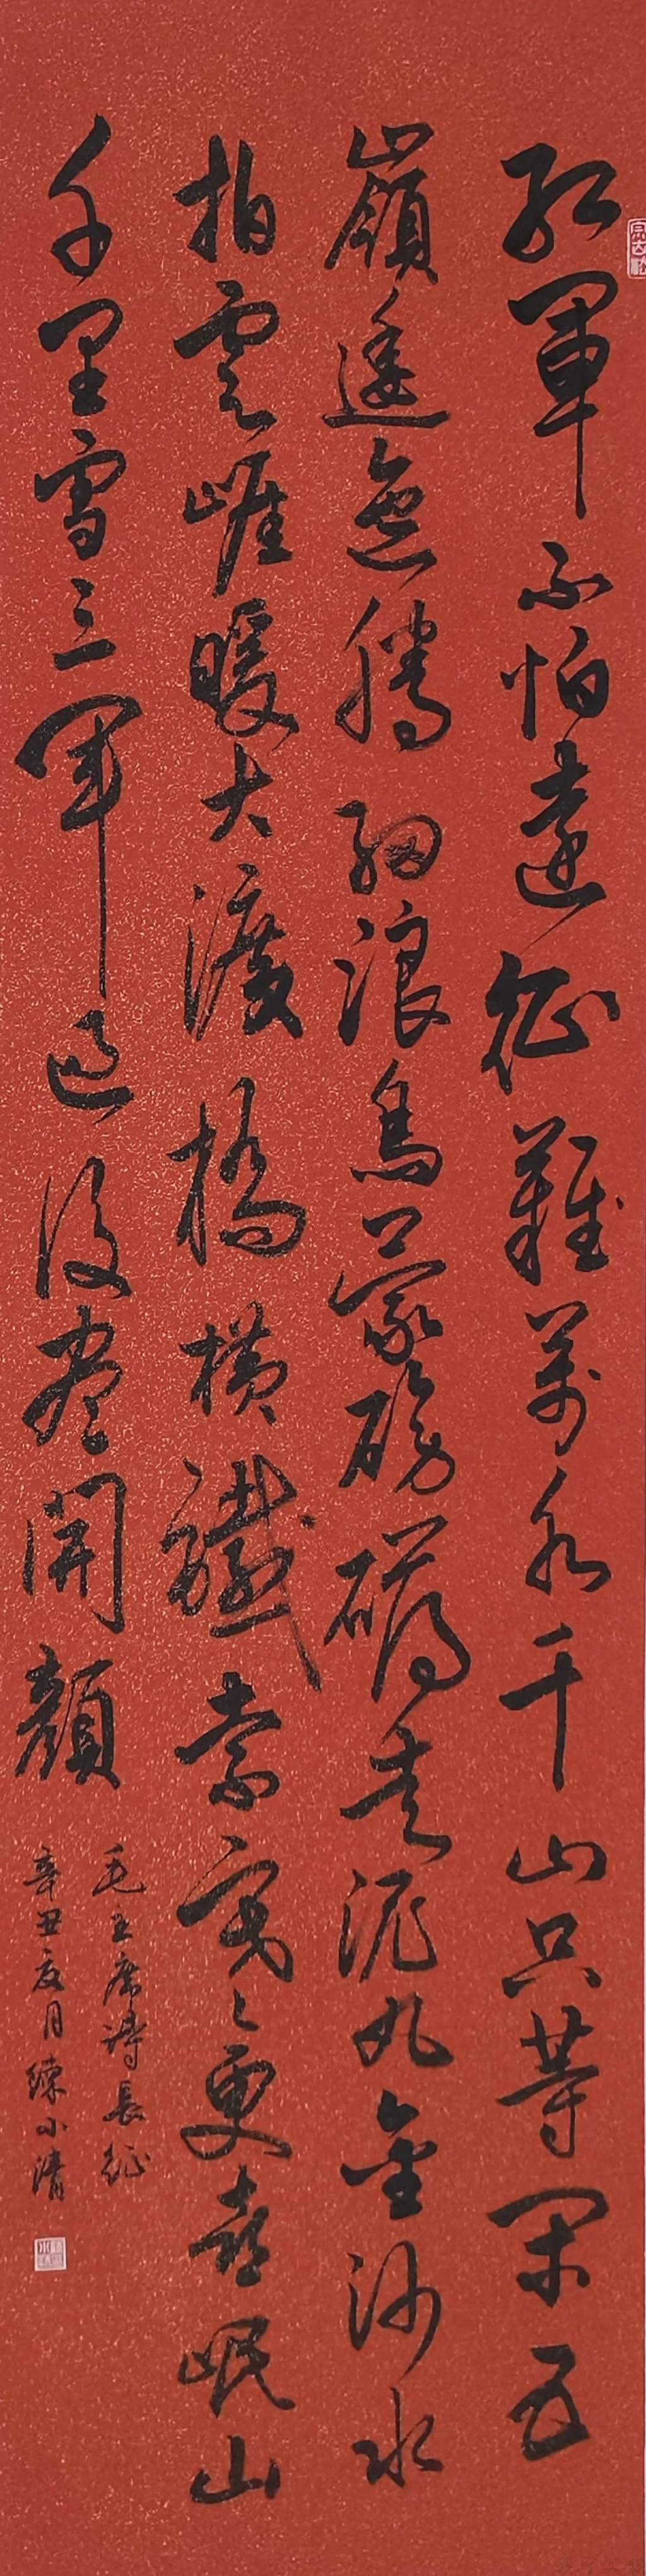 紅軍不怕遠征難萬水千山只等閑五
嶺逶迤騰細浪烏蒙磅礴走泥丸金沙水
拍雲崖暖大渡橋橫鐵索寒更喜岷山
千里雪三軍過後盡開顏
毛主席詩長征
辛丑夏月練小清